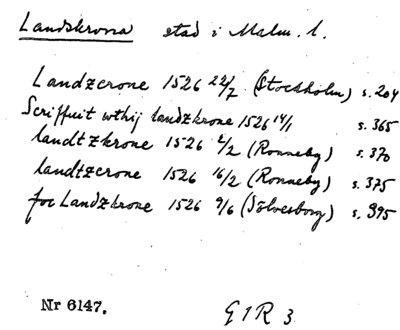 Landskrona stad i Malm. l.
Landzcrone 1526 22/7 (Stockholm) s. 204
Scriffuit wthij landzkrone 1526 14/1 s. 365
landtzkrone 1526 2/2 (Ronneby) s. 370
landtzcrone 1526 16/2 (Ronneby) s. 375
for Landzkrone 1526 9/6 (Sölvesborg) s. 395
Nr 6147. G1R 3